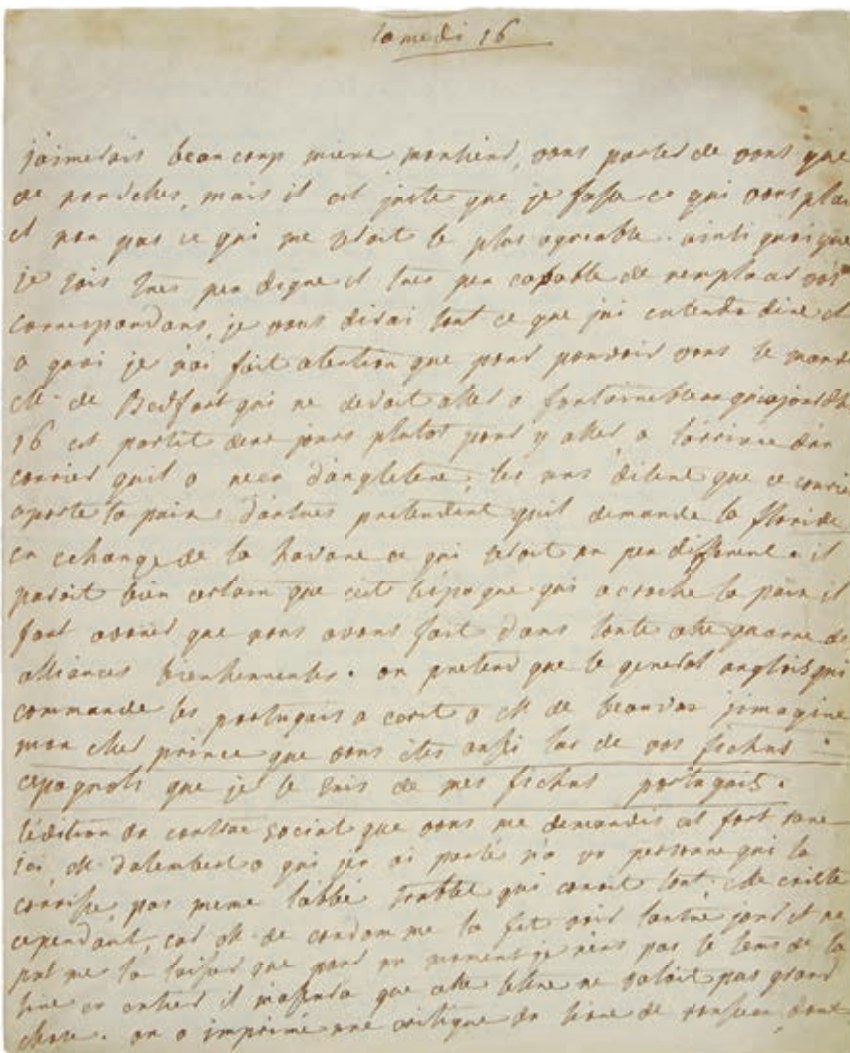 samedi 16
j'aimerois beaucoup mieux monsieur, vous parler de vous que
de nouvelles, mais il est juste que je fasse ce qui vous plai
et non pas ce qui me seroit le plus agreable. ainsi quoique
je sois tres peu digne et tres peu capable de remplacer vos
correspondans, je vous dirai tout ce que j'ai entendu dire et
a quoi je n'ai fait atention que pour pouvoir vous le mande
M. de Bedfort qui ne devoit aller a fontainebleau qu'aujourd'h
16 est partit deux jours plutot pour y aller a l'arrivée d'un
courier qu'il a recu d'angleterre, les uns disent que ce courie
aporte la paix d'autres pretendent qu'il demande la floride
en echange de la havane ce qui seroit un peu different. il
paroit bien certain que c'est l'espagne qui acroche la paix il
faut avouer que nous avons fait dans toute cete guerre de
alliances bien heureuses. on pretend que le general anglois qui
commande les portugais a ecrit a M. de beauvau j'imagine
mon cher prince que vous etes aussi las de vos fichus
espagnols que je le suis de mes fichus portugais.
l'edition du contrac social que vous me demandés est fort rare
ici M. d'alembert a qui j'en ai parlé n'a vu personne qui la
connusse, pas meme l'abbé trublet qui connoit tout, elle existe
cependant, car M. de condom me la fit voir l'autre jour et ne
put me la laisser que pour un moment je n'eus pas le tems de la
lire en entier il m'assura que cette lettre ne valoit pas grand
chose. on a imprimé une critique du livre de rousseau dont